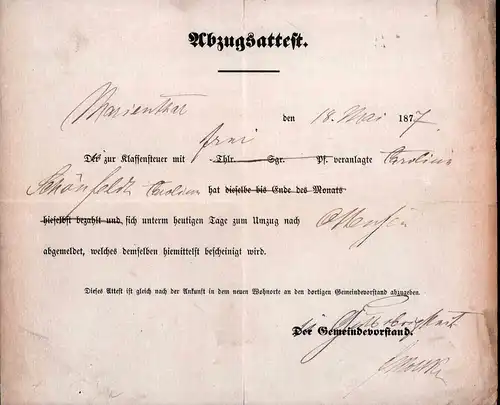 Abzugsattest.
Marienthal den 18. Mai 1877.
frei
Des zur Klassensteuer mit Thlr. Sgr. Pf. veranlagte Caroline
Schönfeldt Caroline hat dieselbe bis Ende des Monats
hieselbst bezahlt und sich unterm heutigen Tage zum Umzug nach Ottensen
abgemeldet, welches demselben hiemittelst bescheinigt wird.
Dieses Attest ist gleich nach der Ankunft in dem neuen Wohnorte an den dortigen Gemeindevorstand abzugeben.
Der Gemeindevorstand.